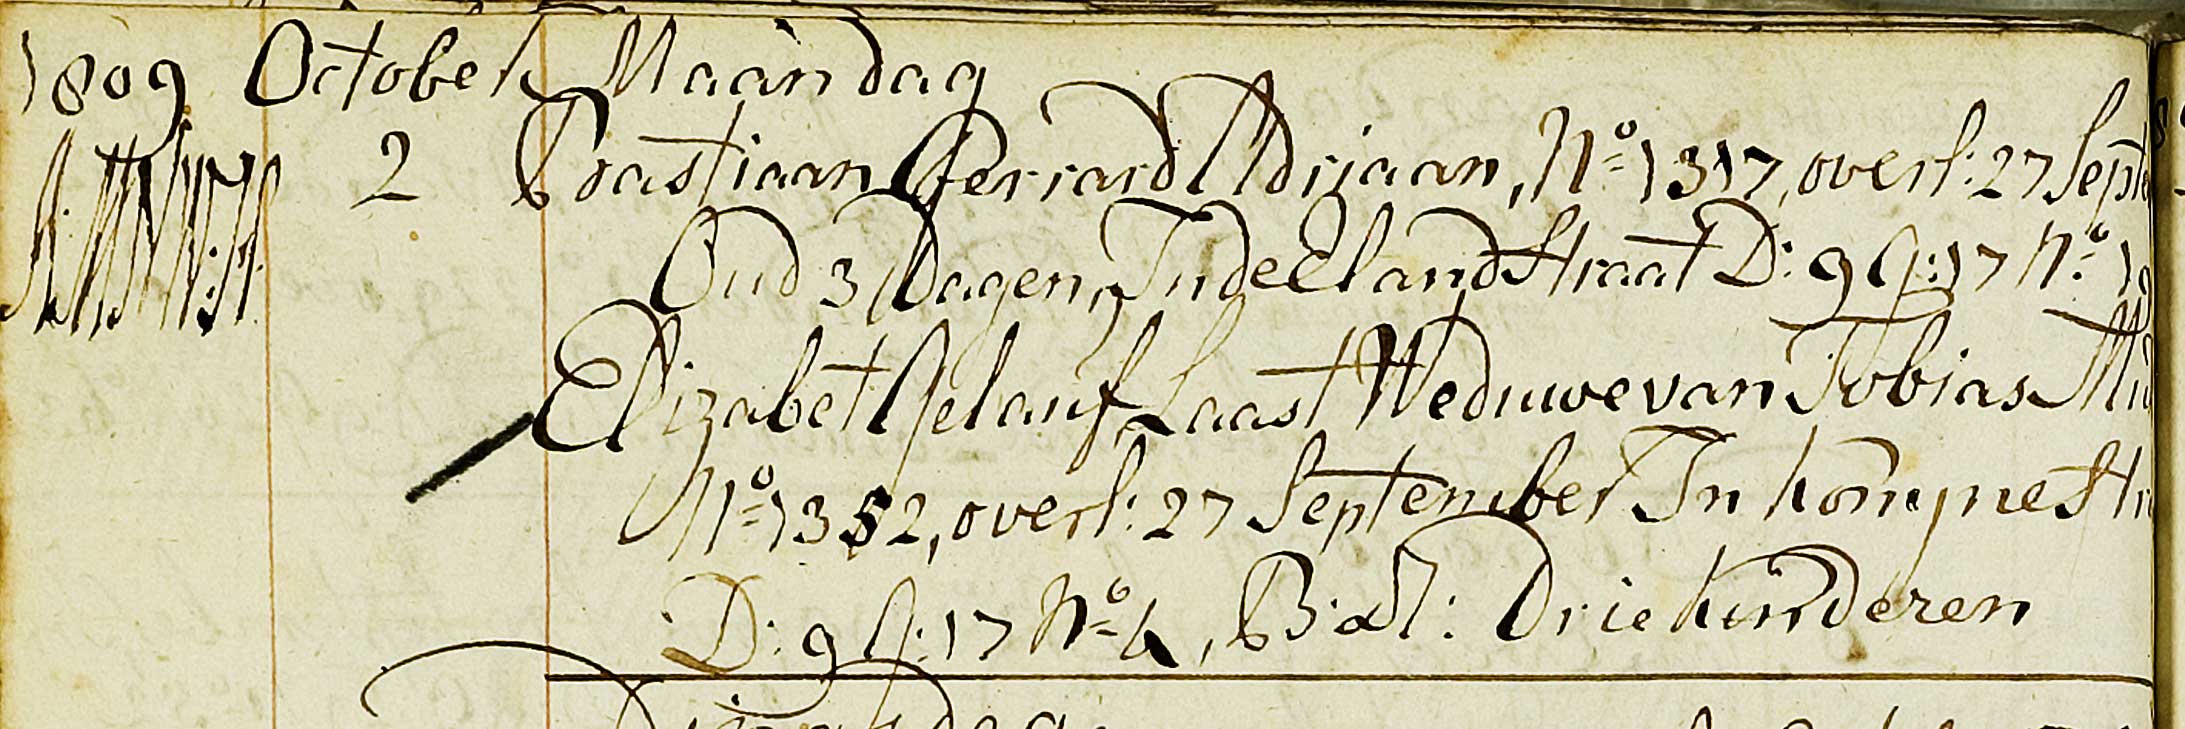 1809 October Maandag
2 Bastiaan Gerrard Adriaan, No 1317, overl: 27 Septe
Oud 3 Dagen, In de Elandstraat D: 9 G: 17 No
Elizabet Laast Weduwe van Tobias
No 1352, overl: 27 September In
D: 9 G: 17 No , Drie kinderen